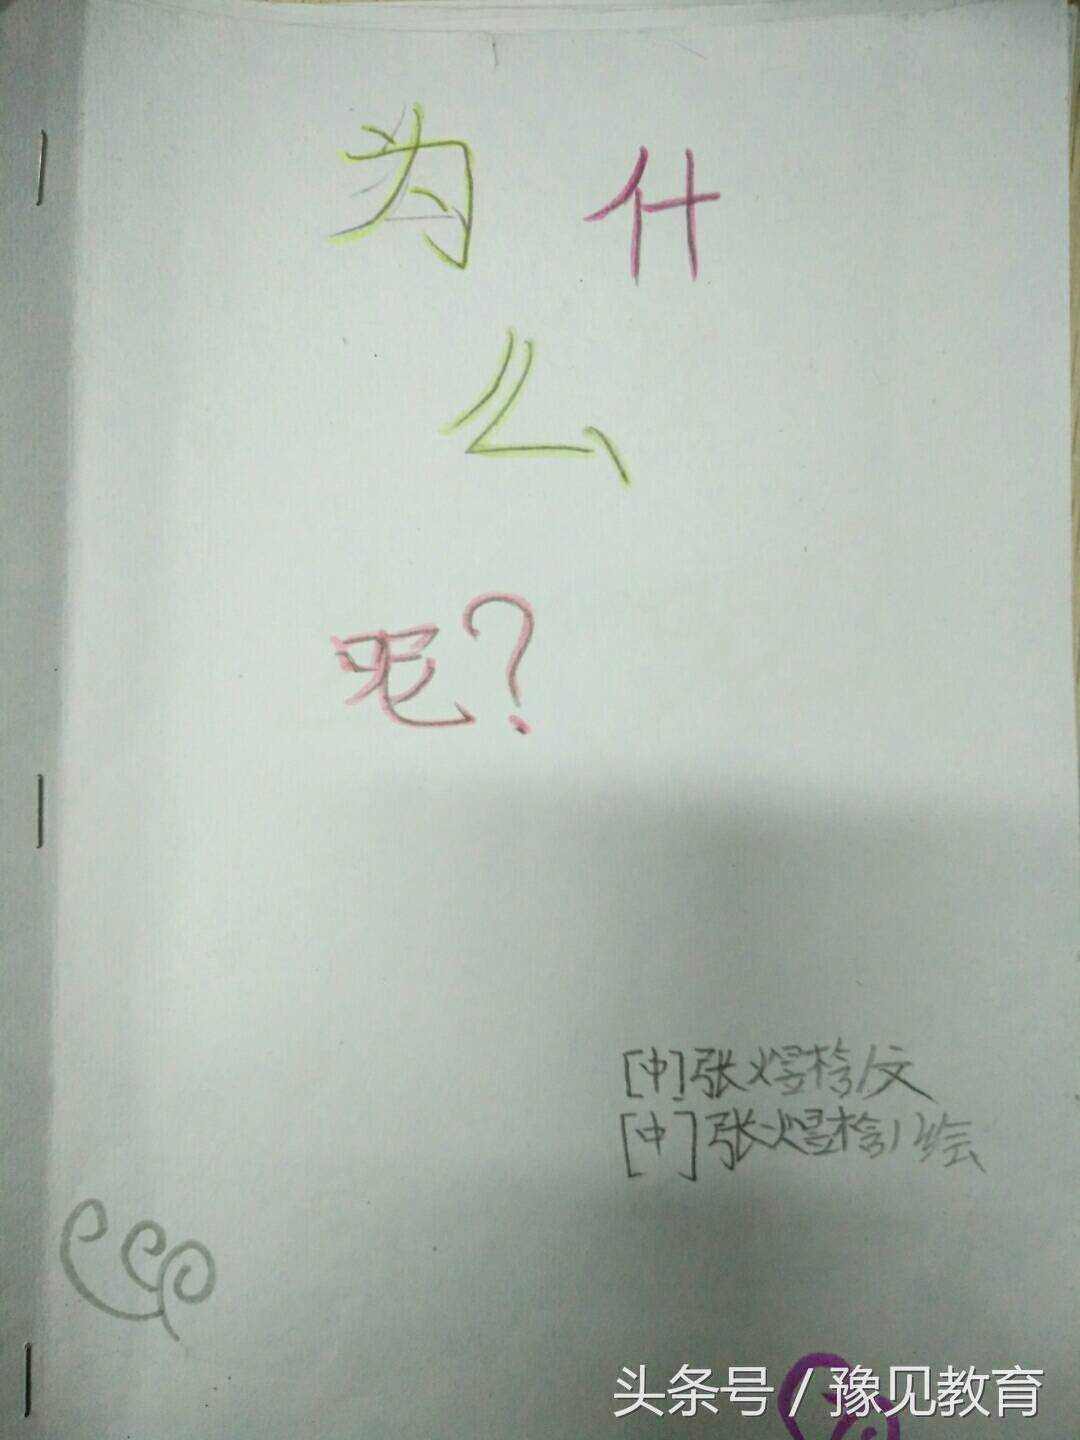 为什
么
呢?
[中]张煜桧/文
[中]张煜桧/绘
头条号/豫见教育